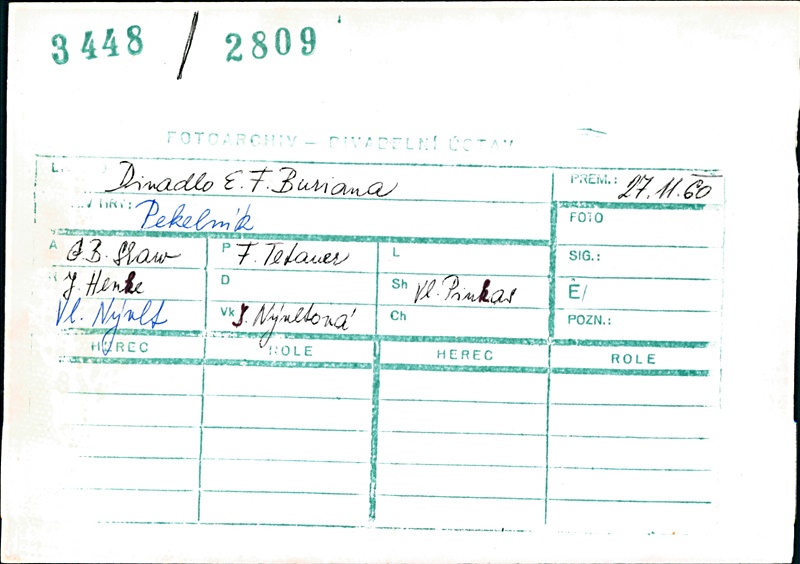 3448 / 2809
FOTOARCHIV – DIVADELNÍ ÚSTAV
Divadlo E. F. Buriana
PREM.: 27.11.60
V HRY: Pekelník
FOTO
A G.B. Shaw
P F. Tetauer
L
SIG.:
R J. Henke
D
Sh Vl. Pinkas
Ê/
Vl. Nývlt
Vk J. Nývltová
Ch
POZN.:
HEREC ROLE HEREC ROLE